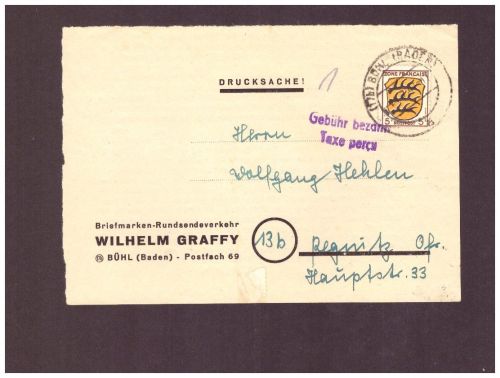 DRUCKSACHE!
1
(17b) BÜHL (BADEN)
ZONE FRANÇAISE
5 5
Gebühr bezahlt
Taxe perçu
Herrn
Wolfgang Hehlen
Briefmarken-Rundsendeverkehr
WILHELM GRAFFY
BÜHL (Baden) - Postfach 69
13b
Regnitz Ofr.
Hauptstr. 33